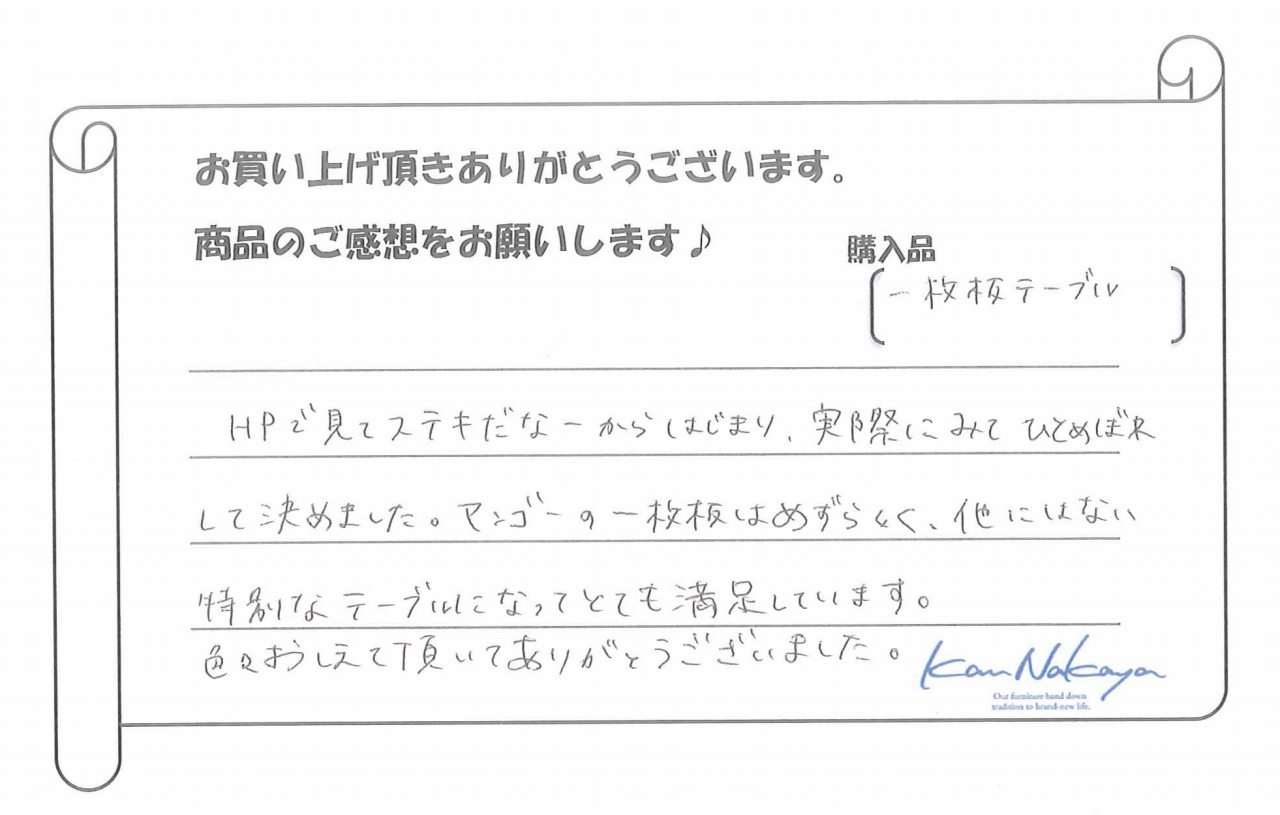 お買い上げ頂きありがとうございます。
商品のご感想をお願いします♪
購入品
一枚板テーブル
HPで見てステキだなーからはじまり、実際にみてひとめぼれ
して決めました。マンゴーの一枚板はめずらしく、他にはない
特別なテーブルになってとても満足しています。
色々おしえて頂いてありがとうございました。
Kan Nakaya
Our furniture hand down
tradition to brand-new life.